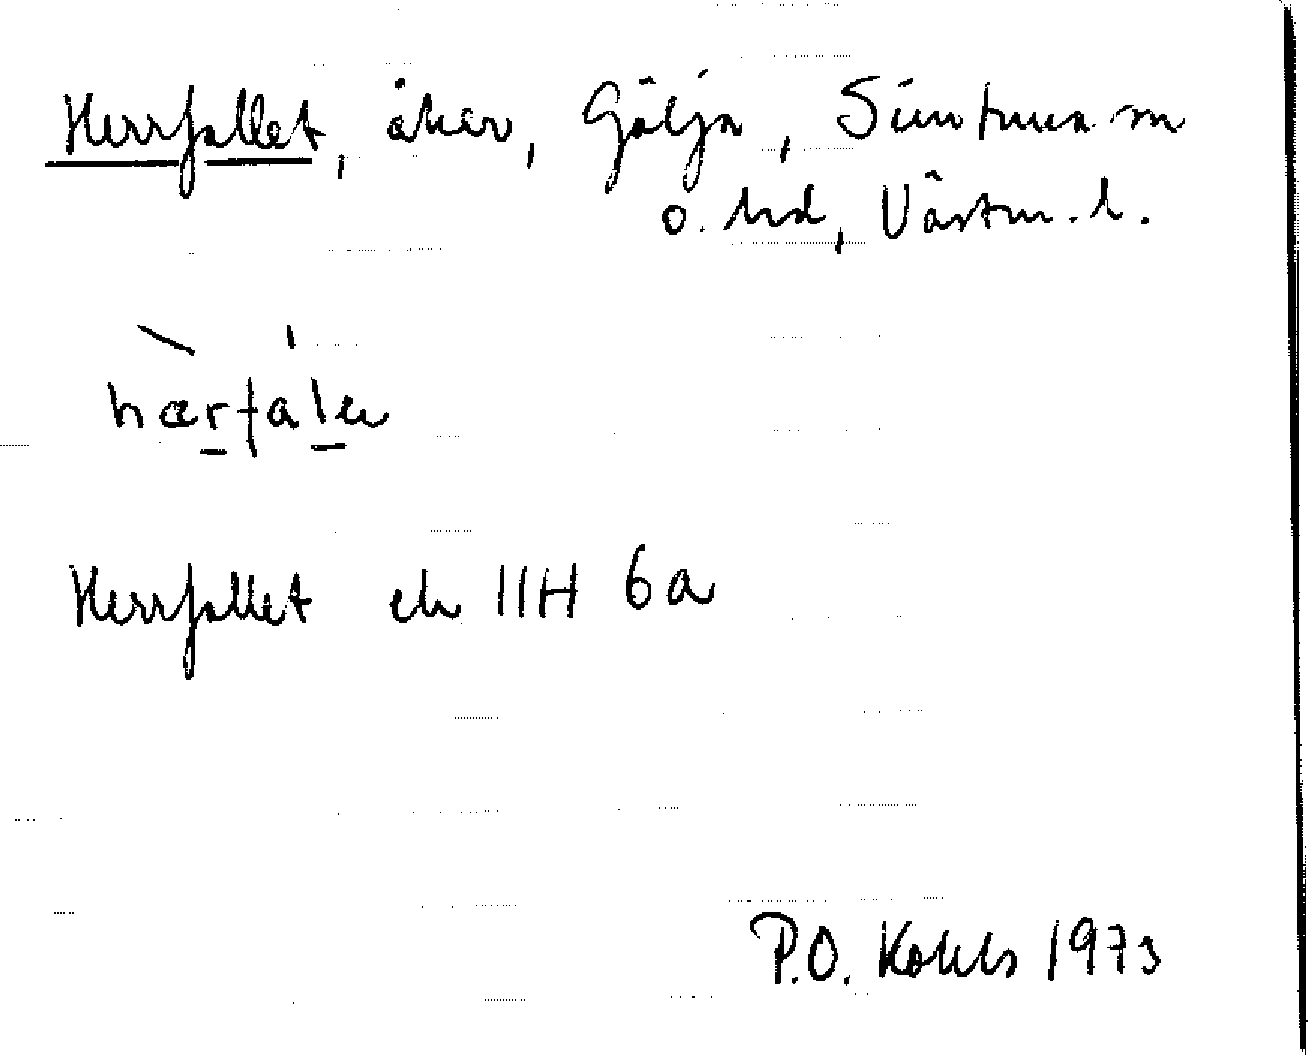 Herrfallet, åker, Gölja, Simtuna sn
o. hd, Västm. l.
hærfalet
Herrfallet ek 11H 6a
P.O. Kohls 1973